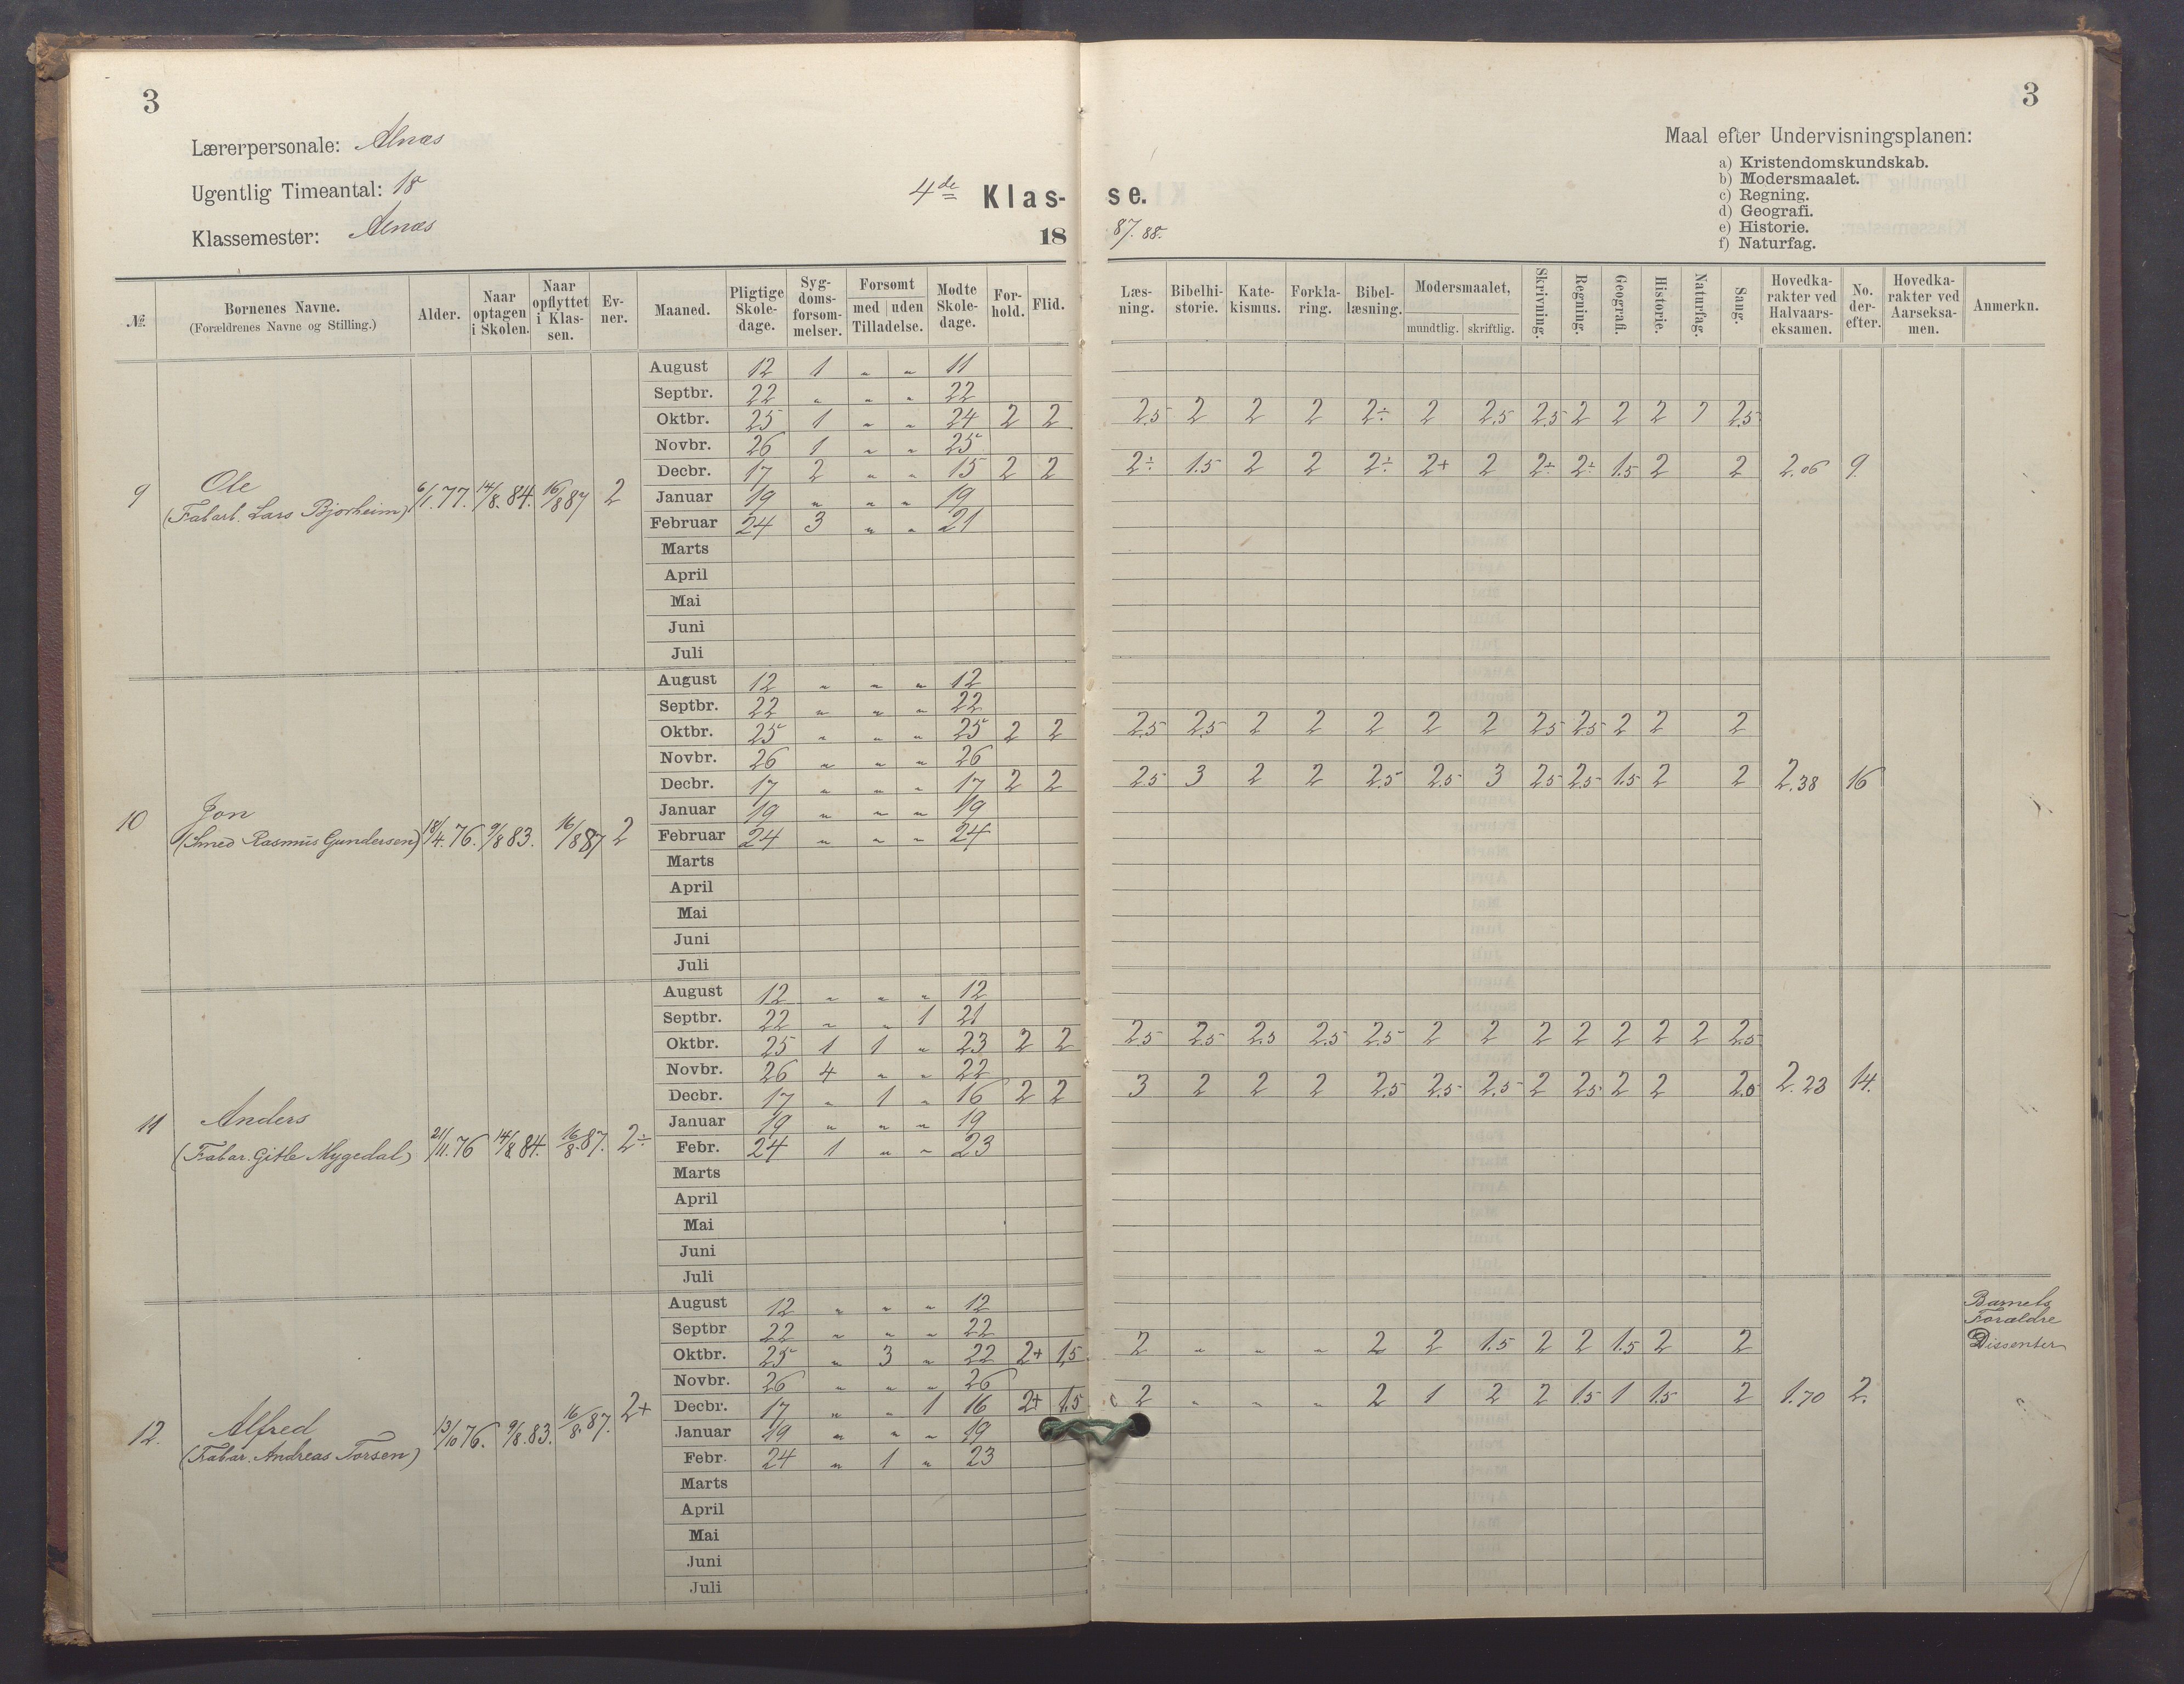 3
Lærerpersonale: Alnæs
Ugentlig Timeantal: 18
Klassemester: Alnæs
4de Klas-
18
№. Børnenes Navne. (Forældrenes Navne og Stilling.) Alder. Naar optagen i Skolen. Naar opflyttet i Klassen. Evner. Maaned. Pligtige Skoledage. Sygdomsforsømmelser. Forsømt med uden Tilladelse. Mødte Skoledage. Forhold. Flid.
August 12 1 " " 11
Septbr. 22 " " " 22
Oktbr. 25 1 " " 24 2 2
Novbr. 26 1 " " 25
Decbr. 17 2 " " 15 2 2
9 Ole
(Fabarb. Lars Bjorheim) 6/1.77. 14/8.84. 16/8 87 2
Januar 19 " " " 19
Februar 24 3 " " 21
Marts
April
Mai
Juni
Juli
August 12 " " " 12
Septbr. 22 " " " 22
Oktbr. 25 " " " 25 2 2
Novbr. 26 " " " 26
Decbr. 17 " " " 17 2 2
10 Jon
(Smed Rasmus Gundersen) 18/4.76. 9/8 83. 16/8 87 2
Januar 19 " " " 19
Februar 24 " " " 24
Marts
April
Mai
Juni
Juli
August 12 " " " 12
Septbr. 22 " " 1 21
Oktbr. 25 1 1 " 23 2 2
Novbr. 26 4 " " 22
Decbr. 17 " 1 " 16 2 2
11 Anders
(Fabar. Gitle Mygedal) 21/11.76 14/8 84. 16/8.87. 2÷
Januar 19 " " " 19
Febr. 24 1 " " 23
Marts
April
Mai
Juni
Juli
August 12 " " " 12
Septbr 22 " " " 22
Oktbr. 25 " 3 " 22 2+ 1,5
Novbr. 26 " " " 26
Decbr. 17 " " 1 16 2+ 1.5
12. Alfred
(Fabar. Andreas Torsen) 13/10 76. 9/8.83. 16/8.87. 2+
Januar 19 " " " 19
Febr. 24 " 1 " 23
Marts
April
Mai
Juni
Juli
3
Maal efter Undervisningsplanen:
a) Kristendomskundskab.
b) Modersmaalet.
c) Regning.
d) Geografi.
e) Historie.
f) Naturfag.
se.
87. 88.
Læsning. Bibelhistorie. Katekismus. Forklaring. Bibellæsning. Modersmaalet, mundtlig. skriftlig. Skrivning. Regning. Geografi. Historie. Naturfag. Sang. Hovedkarakter ved Halvaarseksamen. No. derefter. Hovedkarakter ved Aarseksamen. Anmerkn.
2.5 2 2 2 2÷ 2 2.5 2.5 2 2 2 2.5
2÷ 1.5 2 2 2÷ 2+ 2 2÷ 2÷ 1.5 2 2 2.06 9.
2.5 2.5 2 2 2 2 2 2.5 2.5 2 2 2
2.5 3 2 2 2.5 2.5 3 2.5 2.5 1.5 2 2 2.38 16
2.5 2.5 2.5 2.5 2.5 2 2 2 2 2 2 2 2.5
3 2 2 2 2.5 2.5 2.5 2 2.5 2 2 2.5 2.23 14.
Barnets
Forældre
Dissenter
2 " " " 2 2 1.5 2 2 1.5 2 2
2 " " " 2 1 2 2 1.5 1 1.5 2 1.70 2.